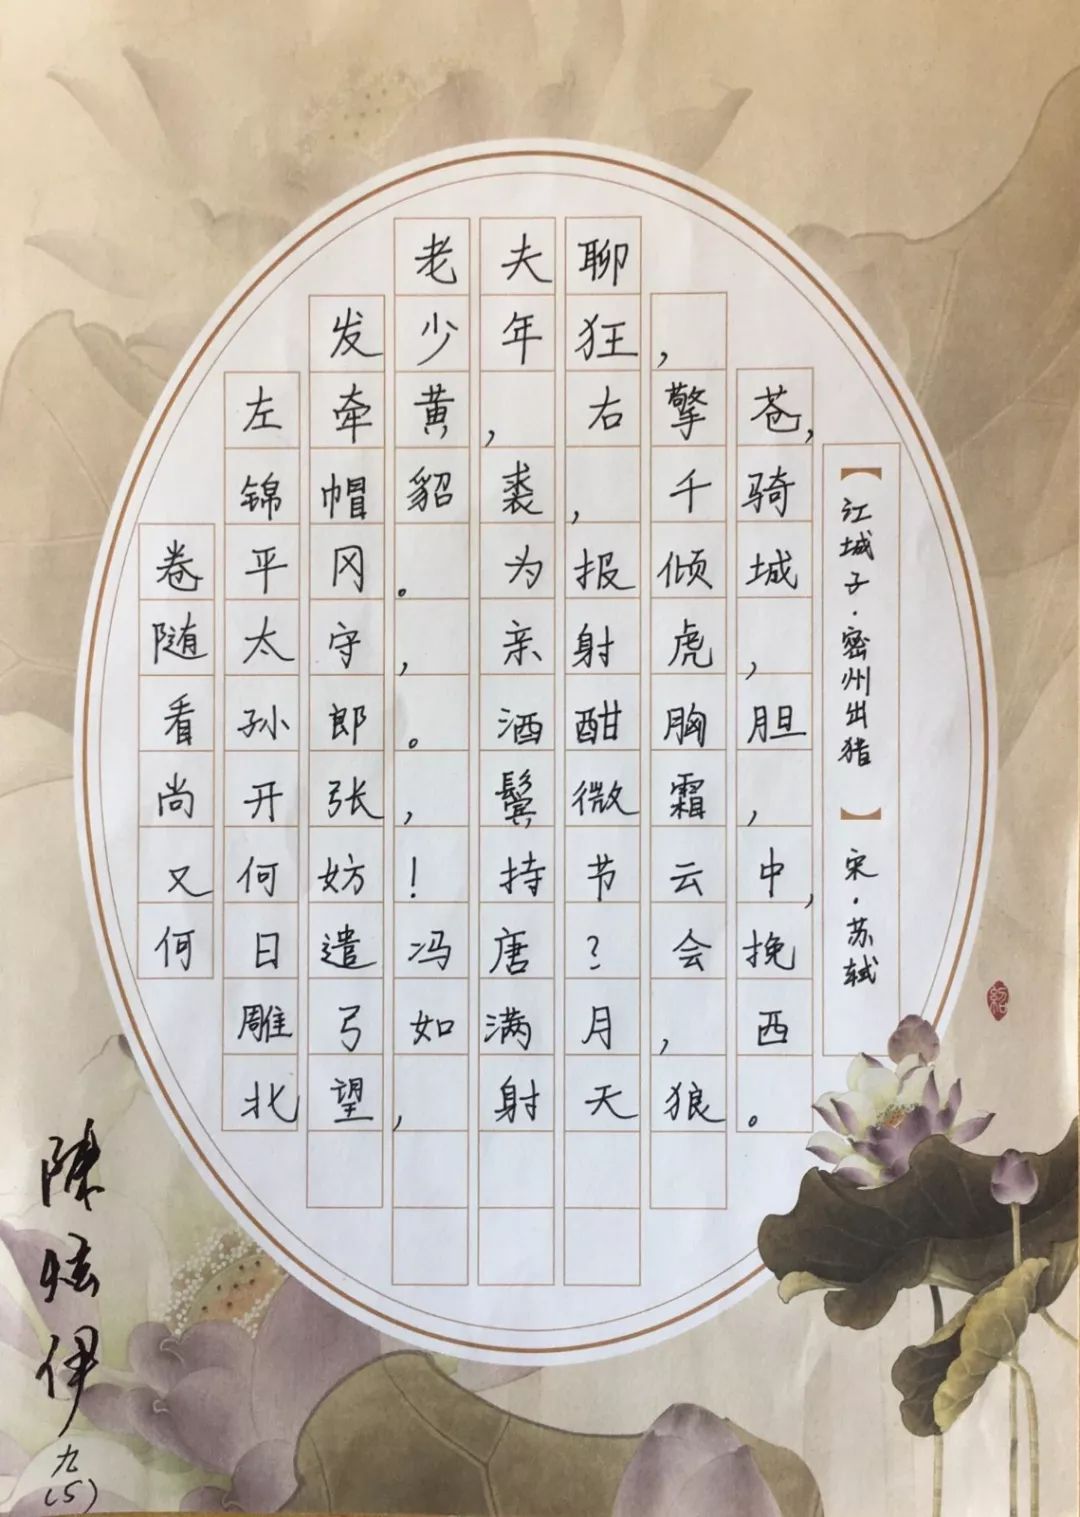 【江城子·密州出猎】宋·苏轼
老夫聊
发少年狂，
左牵黄，右擎苍，
锦帽貂裘，千骑
卷平冈。为报倾城
随太守，亲射虎，
看孙郎。酒酣胸胆
尚开张，鬓微霜，
又何妨！持节云中，
何日遣冯唐？会挽
雕弓如满月，西
北望，射天狼。
陳炫伊
九
(5)